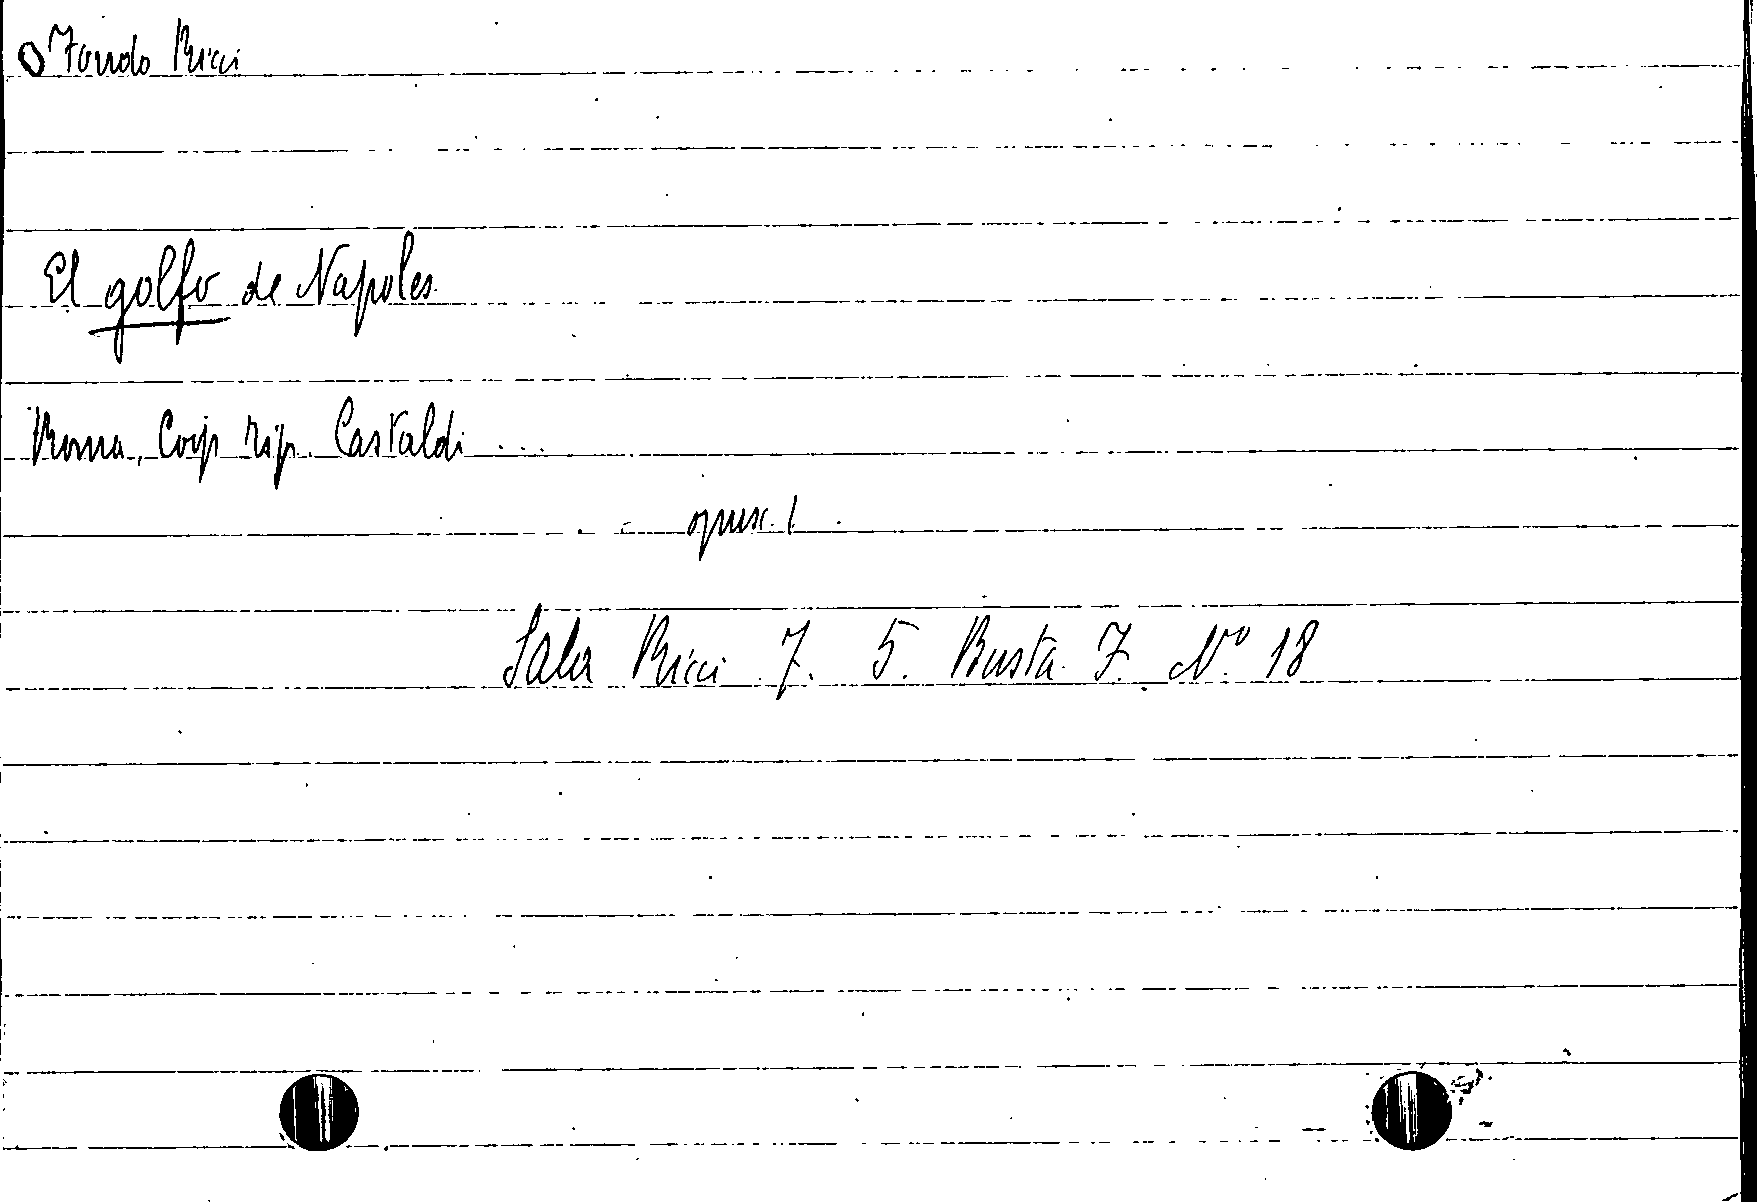 O Fondo Ricci
El golfo de Napoles
Roma, Corp tip. Castaldi ...
opusc. 1
Sala Ricci 7. 5. Busta 7. Nº 18